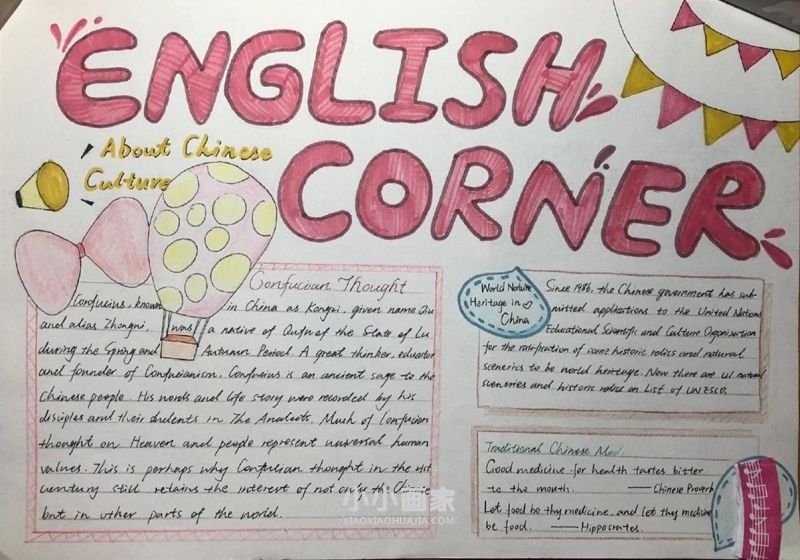 ENGLISH
CORNER
About Chinese
Culture
Confucian Thought
Confucius, known in China as Kongzi, given name Qiu
and alias Zhongni, was a native of Qufu of the State of Lu
during the Spring and Autumn Period. A great thinker, educator
and founder of Confucianism, Confucius is an ancient sage to the
Chinese people. His words and life story were recorded by his
disciples and their students in The Analects. Much of Confucian
thought on Heaven and people represent universal human
values. This is perhaps why Confucian thought in the 21st
century still retains the interest of not only the Chinese
but in other parts of the world.
World Nature
Heritage in
China
Since 1986, the Chinese government has sub-
mitted applications to the United Nations
Educational Scientific and Culture Organization
for the ratification of some historic relics and natural
sceneries to be world heritage. Now there are
sceneries and historic relics on List of UNESCO.
Traditional Chinese Med
Good medicine for health tastes bitter
to the mouth. —— Chinese Proverb
Let food be thy medicine, and let thy medicine
be food. —— Hippocrates.
小小画家
XIAOXIAOHUAJIA.COM